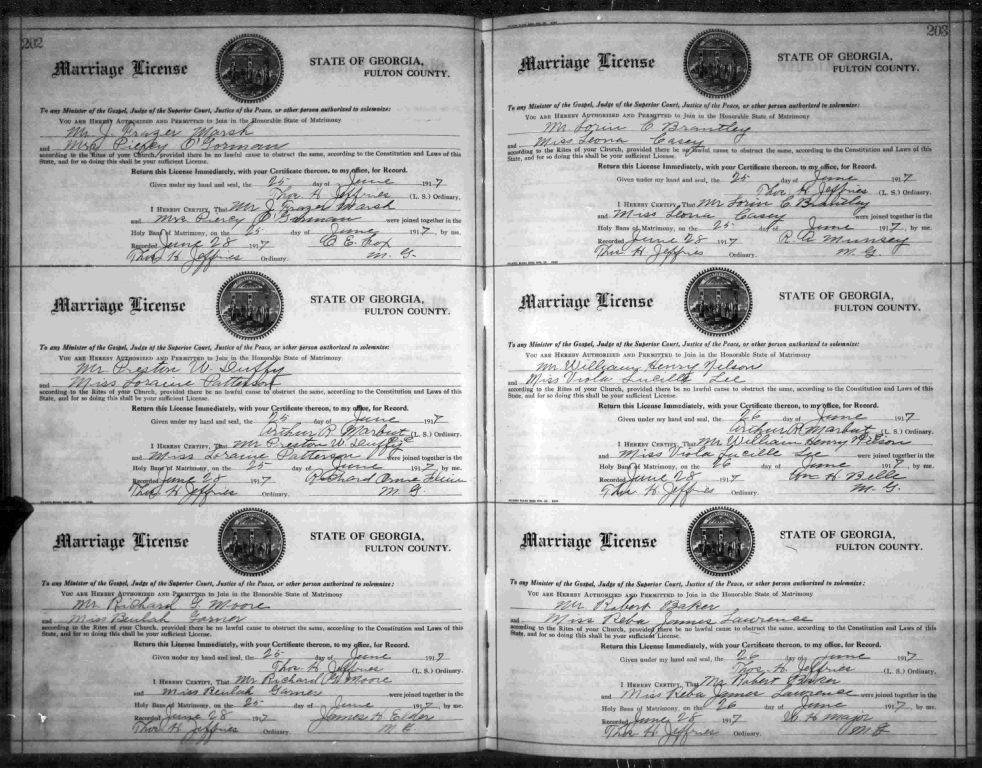 202
Marriage License
STATE OF GEORGIA,
FULTON COUNTY.
To any Minister of the Gospel, Judge of the Superior Court, Justice of the Peace, or other person authorized to solemnize:
YOU ARE HEREBY AUTHORIZED AND PERMITTED to Join in the Honorable State of Matrimony
Mr J. Frazer Marsh
and Mrs Piercy O'Gorman
according to the Rites of your Church, provided there be no lawful cause to obstruct the same, according to the Constitution and Laws of this
State, and for so doing this shall be your sufficient License.
Return this License Immediately, with your Certificate thereon, to my office, for Record.
Given under my hand and seal, the 25 day of June 1917
Thos. H. Jeffries (L. S.) Ordinary.
I HEREBY CERTIFY, That Mr J. Frazer Marsh
and Mrs Piercy O'Gorman were joined together in the
Holy Bans of Matrimony, on the 25 day of June 1917, by me.
Recorded June 28 1917 C. E. Cox
Thos H Jeffries Ordinary. M. G.
Marriage License
STATE OF GEORGIA,
FULTON COUNTY.
To any Minister of the Gospel, Judge of the Superior Court, Justice of the Peace, or other person authorized to solemnize:
YOU ARE HEREBY AUTHORIZED AND PERMITTED to Join in the Honorable State of Matrimony
Mr Preston W. Duffy
and Miss Lorraine Patterson
according to the Rites of your Church, provided there be no lawful cause to obstruct the same, according to the Constitution and Laws of this
State, and for so doing this shall be your sufficient License.
Return this License Immediately, with your Certificate thereon, to my office, for Record.
Given under my hand and seal, the 25 day of June 1917
Arthur R. Marbut (L. S.) Ordinary.
I HEREBY CERTIFY, That Mr Preston W. Duffy
and Miss Loraine Patterson were joined together in the
Holy Bans of Matrimony, on the 25 day of June 1917, by me.
Recorded June 28 1917 Richard Orme
Thos H Jeffries Ordinary. M. G.
Marriage License
STATE OF GEORGIA,
FULTON COUNTY.
To any Minister of the Gospel, Judge of the Superior Court, Justice of the Peace, or other person authorized to solemnize:
YOU ARE HEREBY AUTHORIZED AND PERMITTED to Join in the Honorable State of Matrimony
Mr Richard G. Moore
and Miss Beulah Garner
according to the Rites of your Church, provided there be no lawful cause to obstruct the same, according to the Constitution and Laws of this
State, and for so doing this shall be your sufficient License.
Return this License Immediately, with your Certificate thereon, to my office, for Record.
Given under my hand and seal, the 25 day of June 1917
Thos. H. Jeffries (L. S.) Ordinary.
I HEREBY CERTIFY, That Mr Richard G. Moore
and Miss Beulah Garner were joined together in the
Holy Bans of Matrimony, on the 25 day of June 1917, by me.
Recorded June 28 1917 James H. Elder
Thos H Jeffries Ordinary. M. G.
203
Marriage License
STATE OF GEORGIA,
FULTON COUNTY.
To any Minister of the Gospel, Judge of the Superior Court, Justice of the Peace, or other person authorized to solemnize:
YOU ARE HEREBY AUTHORIZED AND PERMITTED to Join in the Honorable State of Matrimony
Mr Lorin C Brantley
and Miss Leona Casey
according to the Rites of your Church, provided there be no lawful cause to obstruct the same, according to the Constitution and Laws of this
State, and for so doing this shall be your sufficient License.
Return this License Immediately, with your Certificate thereon, to my office, for Record.
Given under my hand and seal, the 25 day of June 1917
Thos. H. Jeffries (L. S.) Ordinary.
I HEREBY CERTIFY, That Mr Lorin C Brantley
and Miss Leona Casey were joined together in the
Holy Bans of Matrimony, on the 25 day of June 1917, by me.
Recorded June 28 1917 Munsey
Thos H Jeffries Ordinary. M. G.
Marriage License
STATE OF GEORGIA,
FULTON COUNTY.
To any Minister of the Gospel, Judge of the Superior Court, Justice of the Peace, or other person authorized to solemnize:
YOU ARE HEREBY AUTHORIZED AND PERMITTED to Join in the Honorable State of Matrimony
Mr William Henry Nelson
and Miss Viola Lucille Lee
according to the Rites of your Church, provided there be no lawful cause to obstruct the same, according to the Constitution and Laws of this
State, and for so doing this shall be your sufficient License.
Return this License Immediately, with your Certificate thereon, to my office, for Record.
Given under my hand and seal, the 26 day of June 1917
Arthur R Marbut (L. S.) Ordinary.
I HEREBY CERTIFY, That Mr William Henry Nelson
and Miss Viola Lucille Lee were joined together in the
Holy Bans of Matrimony, on the 26 day of June 1917, by me.
Recorded June 28 1917 Wm H. Belle
Thos H Jeffries Ordinary. M. G.
Marriage License
STATE OF GEORGIA,
FULTON COUNTY.
To any Minister of the Gospel, Judge of the Superior Court, Justice of the Peace, or other person authorized to solemnize:
YOU ARE HEREBY AUTHORIZED AND PERMITTED to Join in the Honorable State of Matrimony
Mr Robert Baker
and Miss Reba James Lawrense
according to the Rites of your Church, provided there be no lawful cause to obstruct the same, according to the Constitution and Laws of this
State, and for so doing this shall be your sufficient License.
Return this License Immediately, with your Certificate thereon, to my office, for Record.
Given under my hand and seal, the 26 day of June 1917
Thos. H. Jeffries (L. S.) Ordinary.
I HEREBY CERTIFY, That Mr Robert Baker
and Miss Reba James Lawrense were joined together in the
Holy Bans of Matrimony, on the 26 day of June 1917, by me.
Recorded June 28 1917 W. H. Major
Thos H Jeffries Ordinary. M G